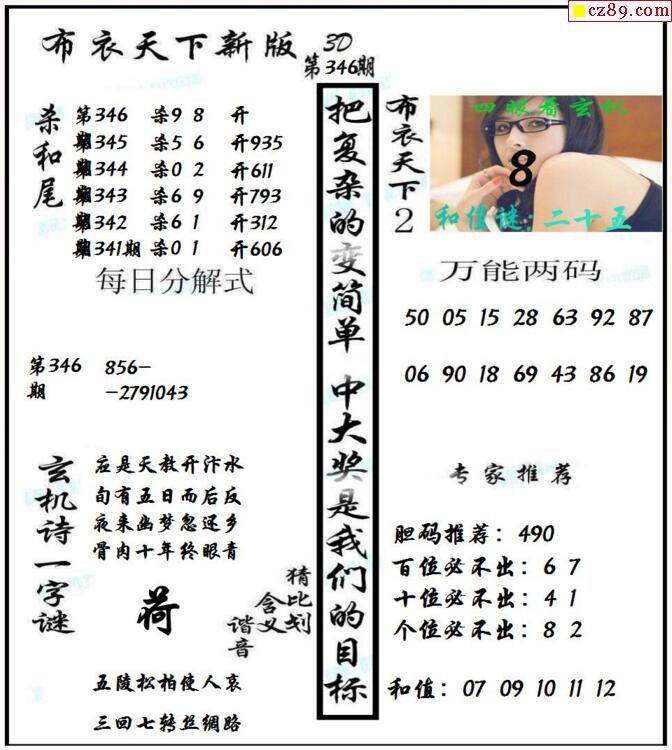 cz89.com
布衣天下新版 3D
第346期
杀和尾
第346期 杀9 8 开
第345期 杀5 6 开935
第344期 杀0 2 开611
第343期 杀6 9 开793
第342期 杀6 1 开312
第341期 杀0 1 开606
每日分解式
第346期 856-
-2791043
玄机诗一字谜
应是天教开汴水
旬有五日而后反
夜来幽梦忽还乡
骨肉十年终眼青
荷
猜比划
含义
谐音
五陵松柏使人哀
三回七转丝绸路
把复杂的变简单 中大奖是我们的目标
布衣天下2
四眼看玄机
8
和值谜:二十五
万能两码
50 05 15 28 63 92 87
06 90 18 69 43 86 19
专家推荐
胆码推荐:490
百位必不出:6 7
十位必不出:4 1
个位必不出:8 2
和值:07 09 10 11 12